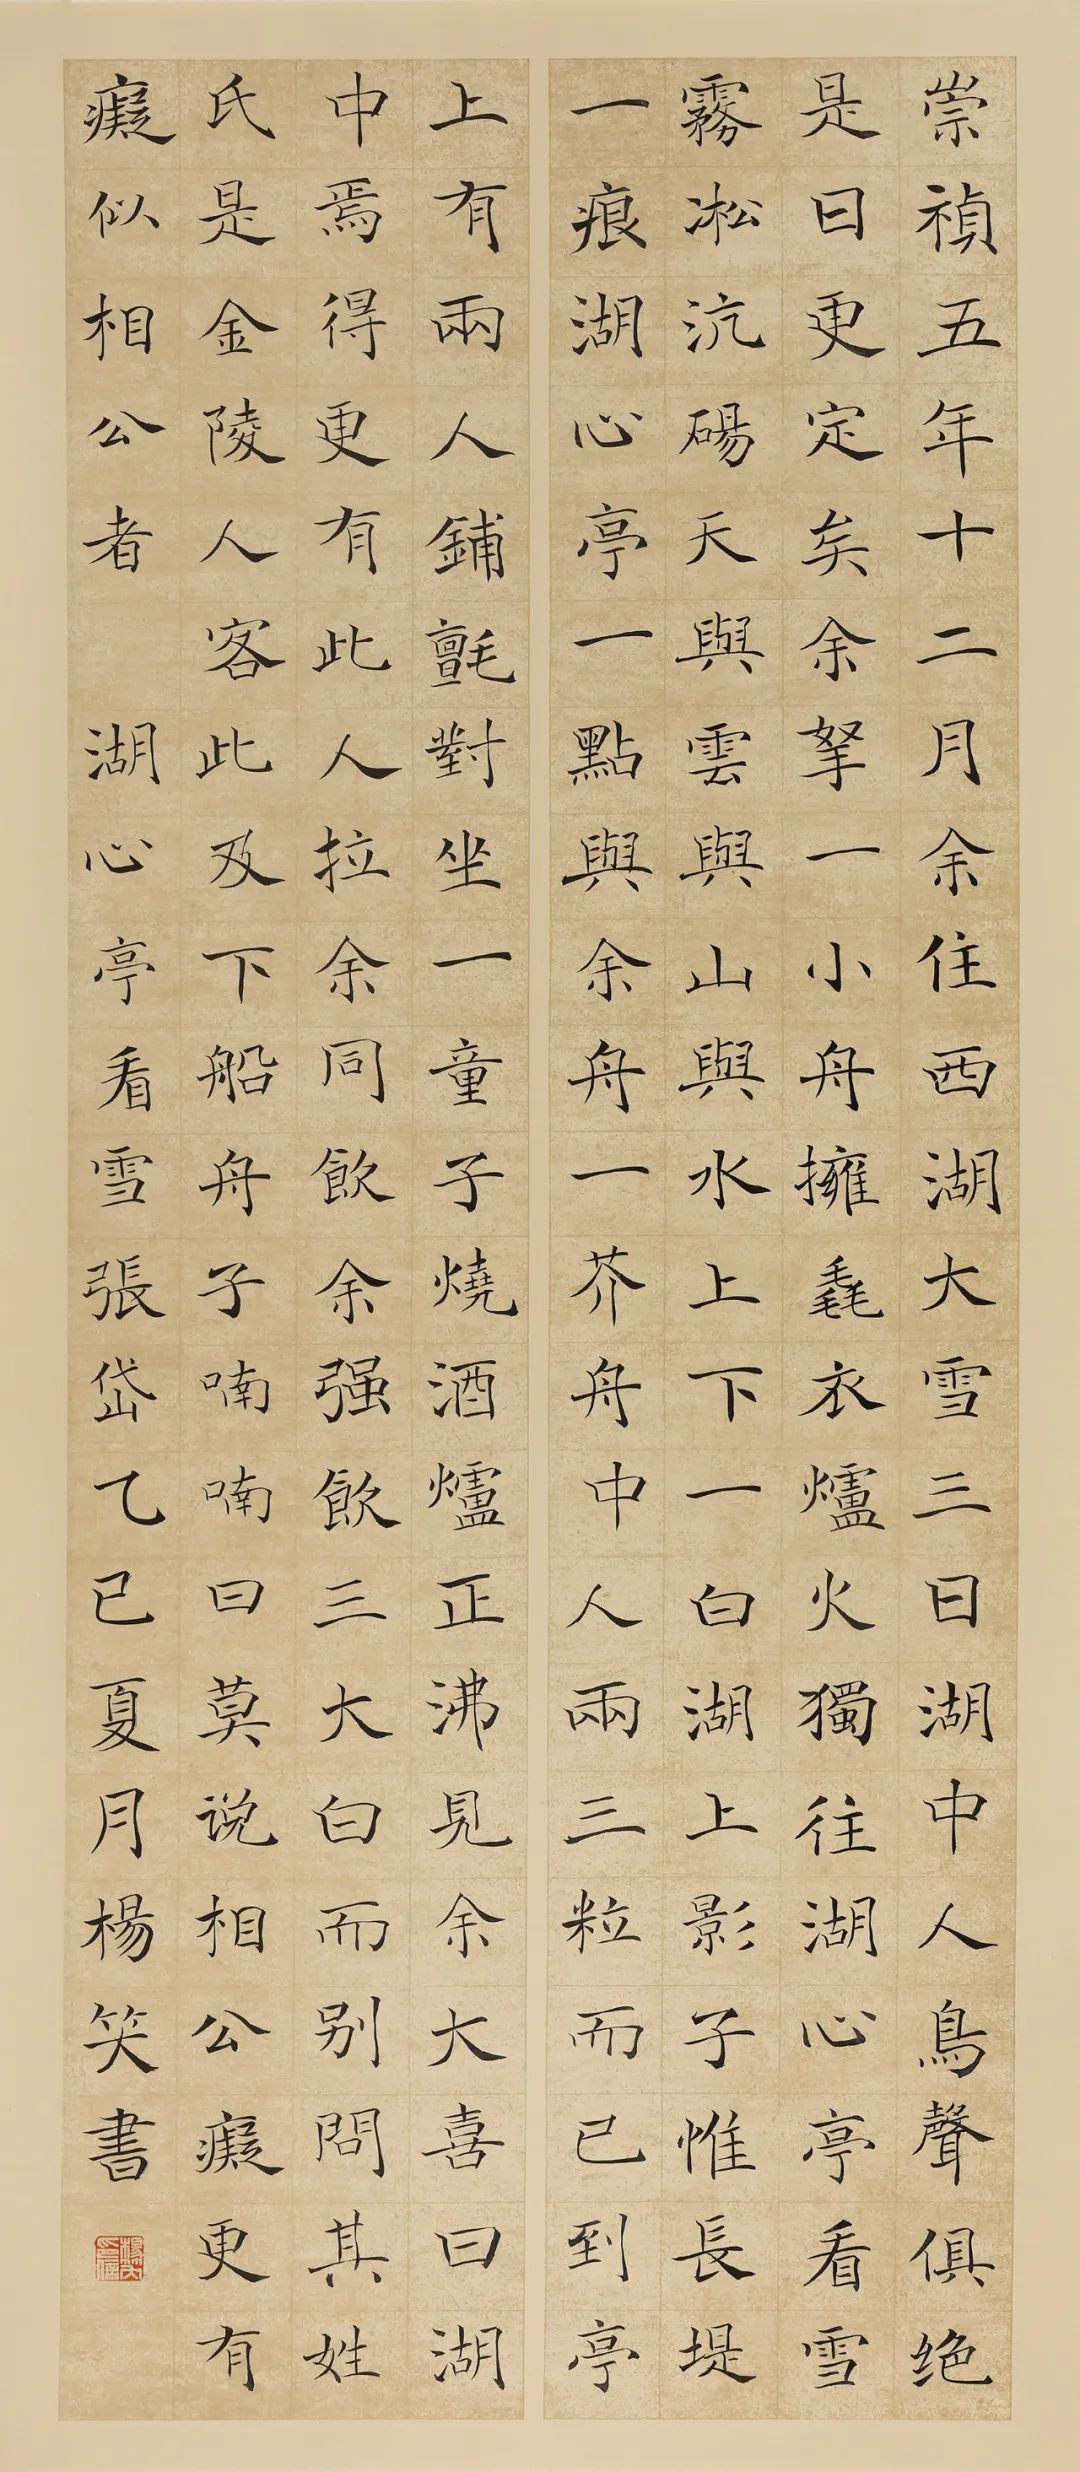 崇禎五年十二月余住西湖大雪三日湖中人鳥聲俱绝
是日更定矣余拏一小舟擁毳衣爐火獨往湖心亭看雪
霧凇沆碭天與雲與山與水上下一白湖上影子惟長堤
一痕湖心亭一點與余舟一芥舟中人兩三粒而已到亭
上有兩人鋪氈對坐一童子燒酒爐正沸見余大喜曰湖
中焉得更有此人拉余同飲余强飲三大白而别問其姓
氏是金陵人客此及下船舟子喃喃曰莫说相公癡更有
癡似相公者 湖心亭看雪張岱乙巳夏月楊笑書